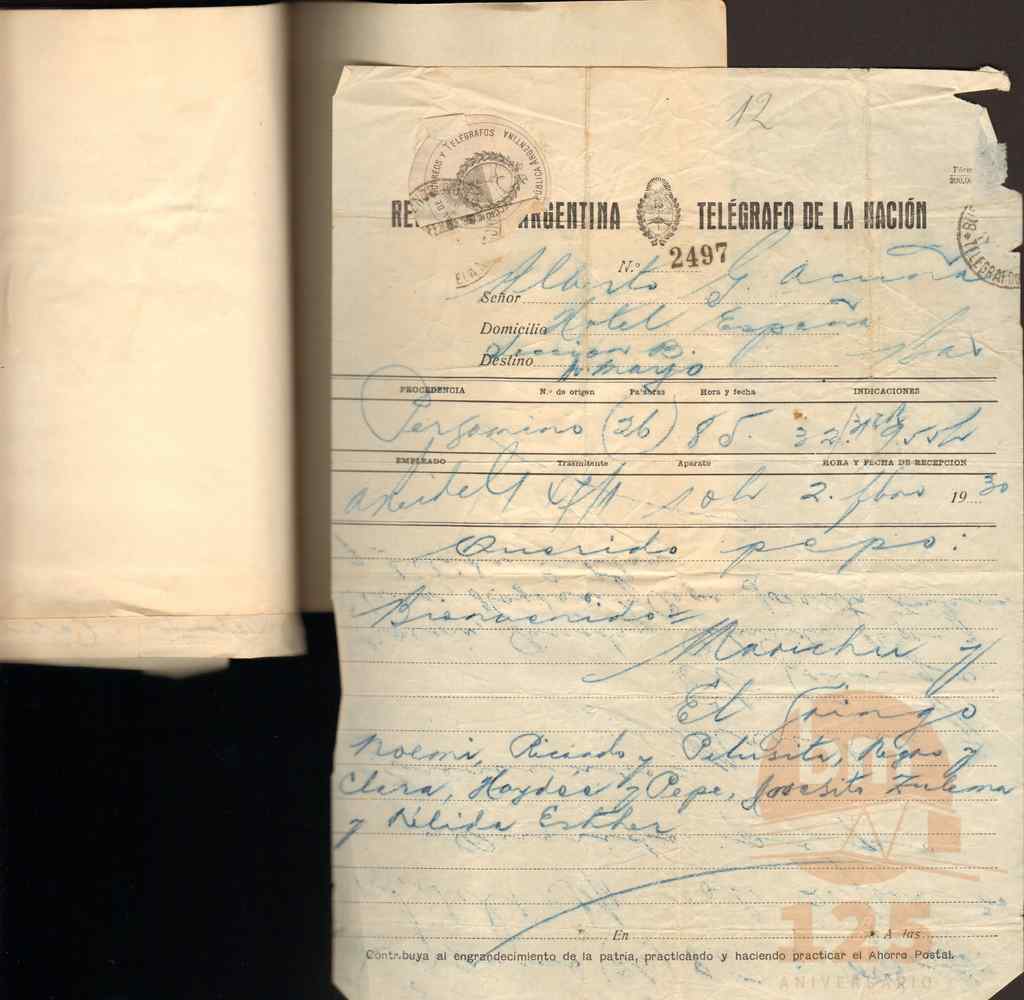 12
CORREOS Y TELÉGRAFOS
ARGENTINA
REPÚBLICA ARGENTINA TELÉGRAFO DE LA NACIÓN
N.º 2497
Señor Alberto G. Acuña
Domicilio Hotel España
Destino
PROCEDENCIA N.º de origen Palabras Hora y fecha INDICACIONES
Pergamino (26) 85.
EMPLEADO Trasmitente Aparato HORA Y FECHA DE RECEPCION
10 h 2. 1930
Querido pepo:
Bienvenidos
Marichu y
El Gringo
Noemi, Ricardo y Pelusita, Negro y
Clara, Haydée y Pepe, Josesito Zulema
y Nélida Esther
En A las
Contribuya al engrandecimiento de la patria, practicando y haciendo practicar el Ahorro Postal.
bn
125
ANIVERSARIO